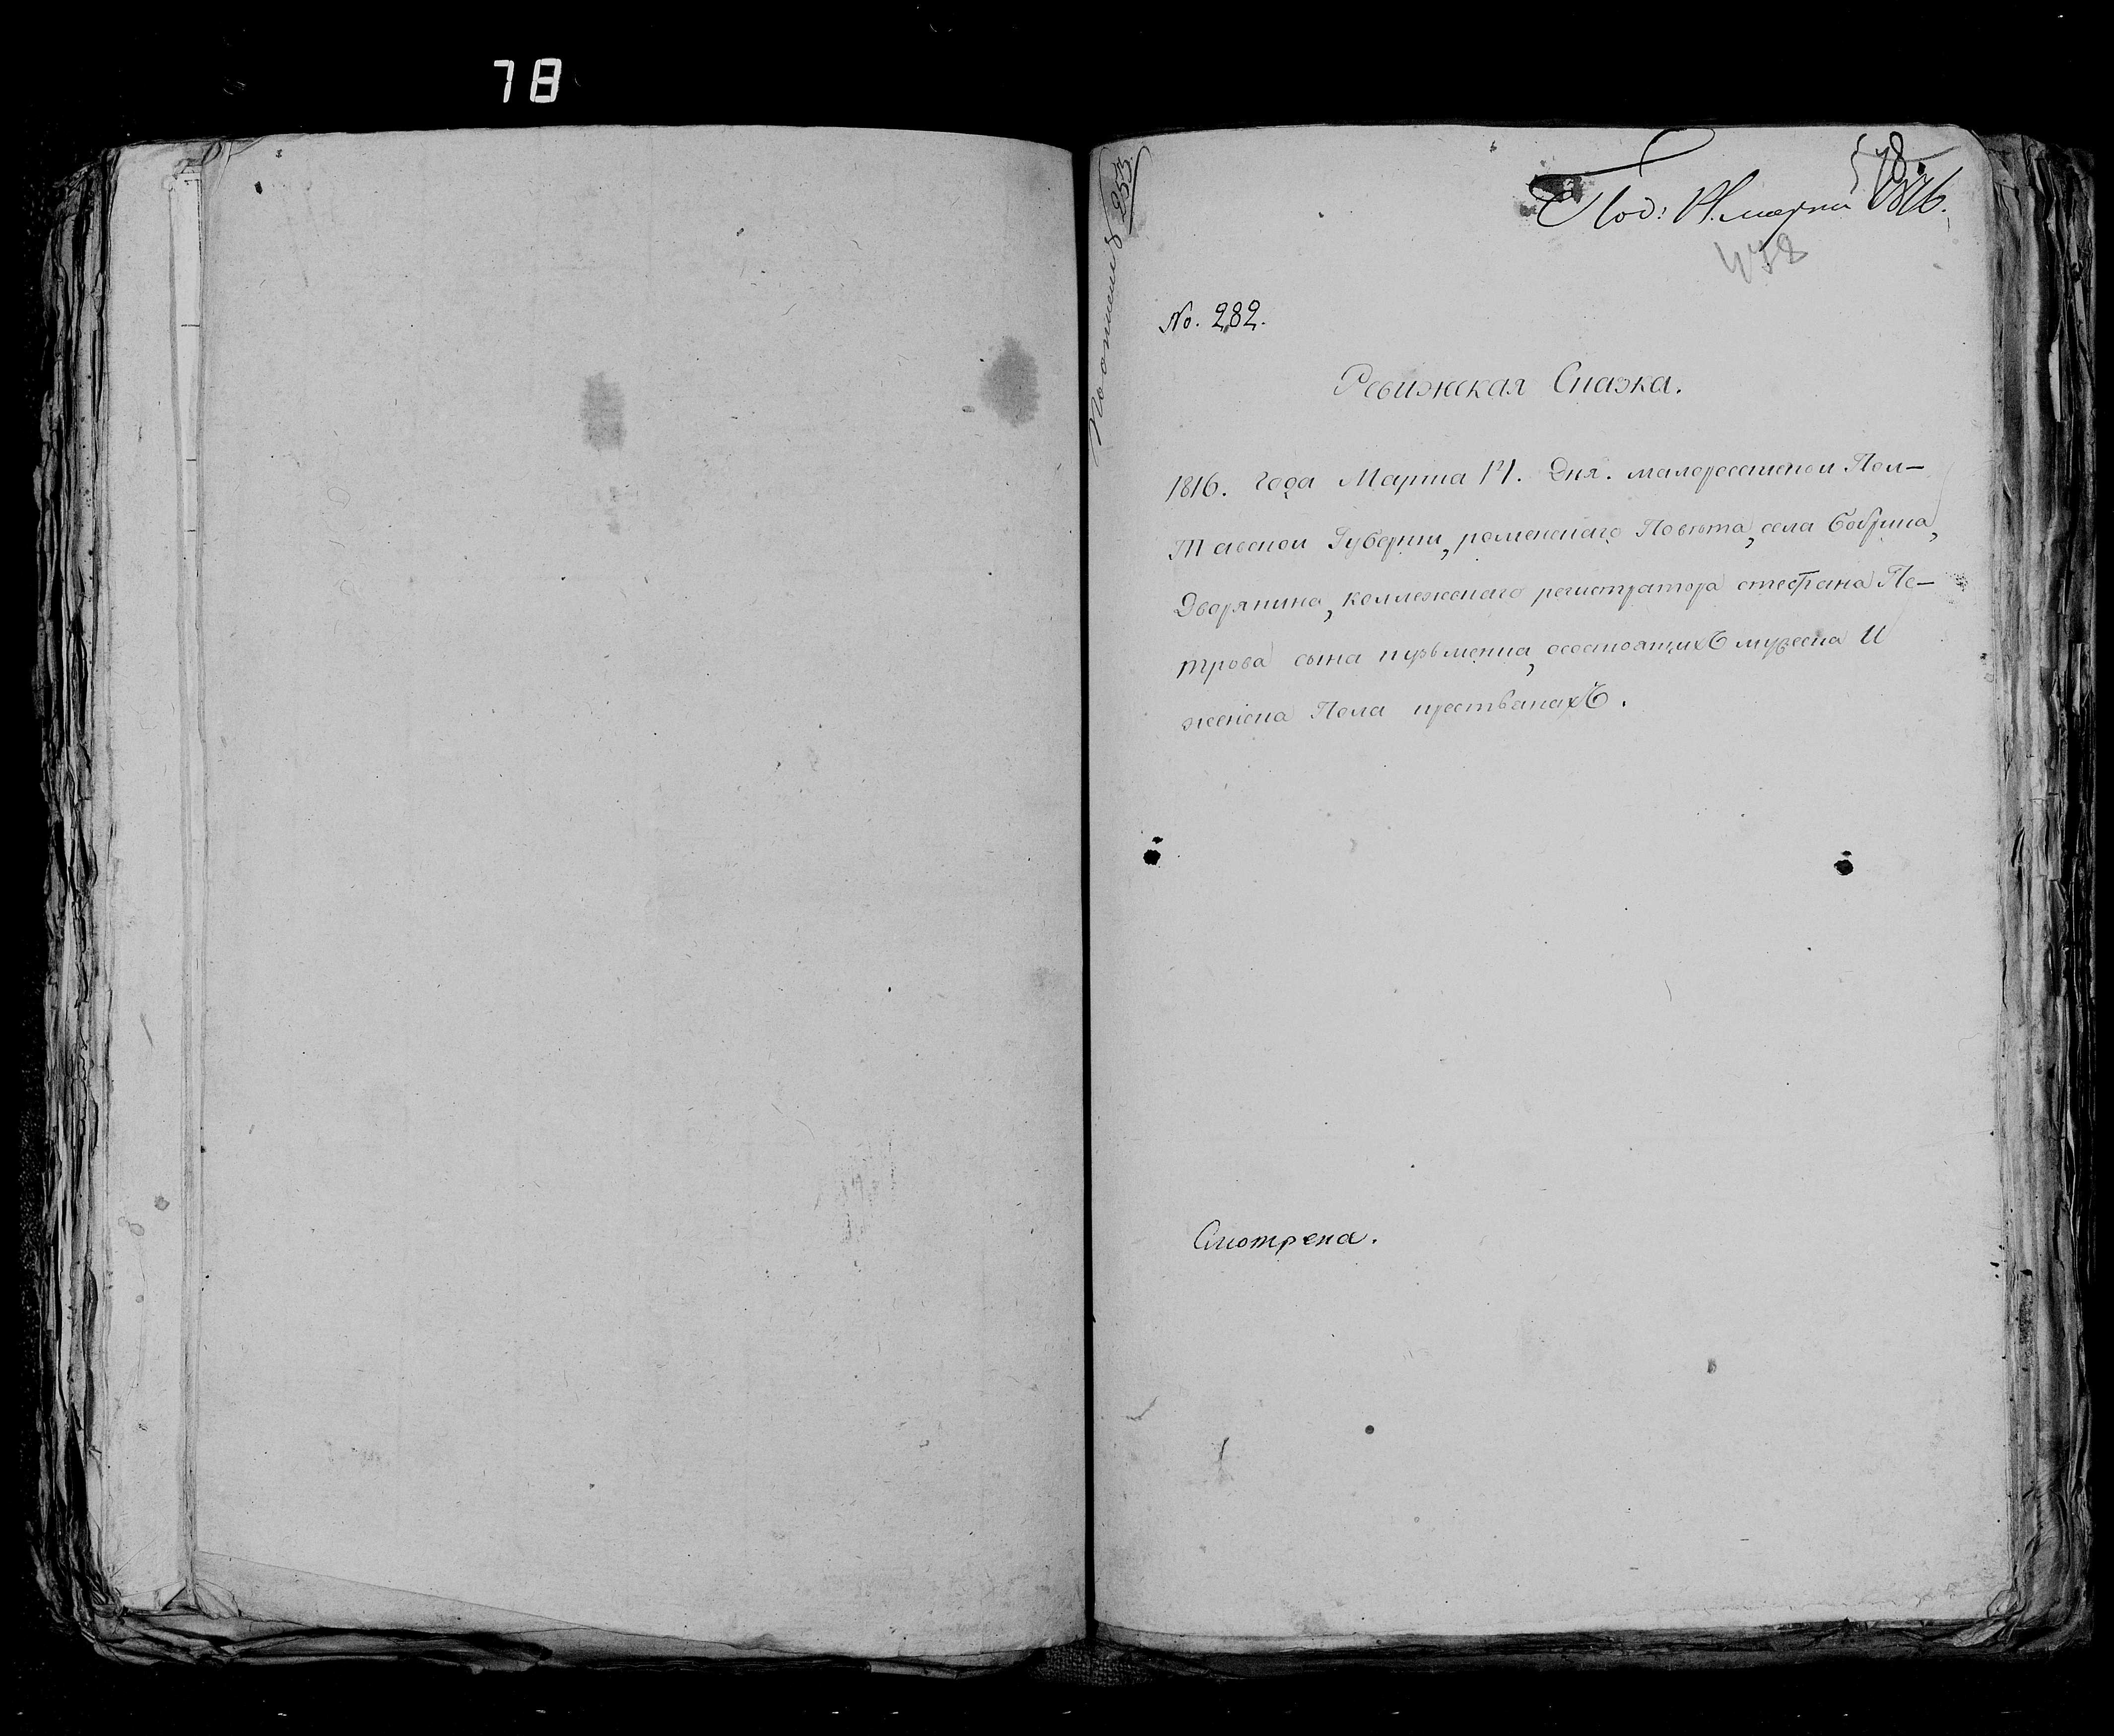 78
578.
Под: 14. марта 1816.
458
По описи 253.
No. 282.
Ревижская Сказка.
1816. Года Марта 14. Дня. малороссийской Пол-
тавской Губернии, роменского Повѣта, села Бобрика,
Дворянина, коллежского регистратора стефана Пе-
трова сына кузьменка, осостоящихъ мужеска И
женска Пола крестьянахъ.
Смотрена.